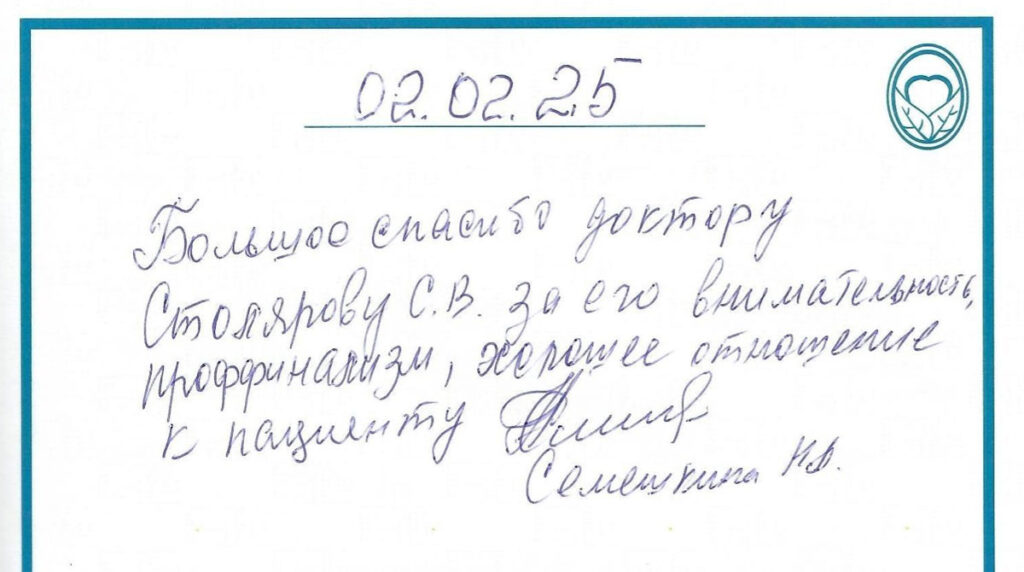 02.02.25
Большое спасибо доктору
Столярову С.В. за его внимательность,
проффинализм, хорошее отношение
к пациенту
Семешкина